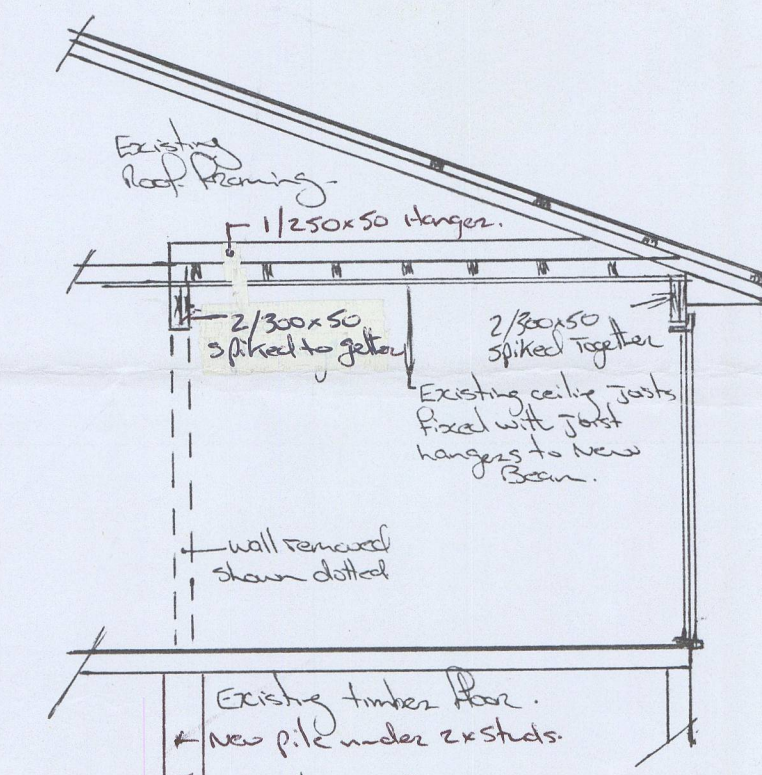 Existing
Roof Framing.
1/250x50 Hanger.
2/300x50
spiked to gether
2/300x50
spiked Together
Existing ceiling Joists
fixed with joist
hangers to New
Beam.
wall removed
shown dotted
Existing timber floor.
New pile under 2x studs.